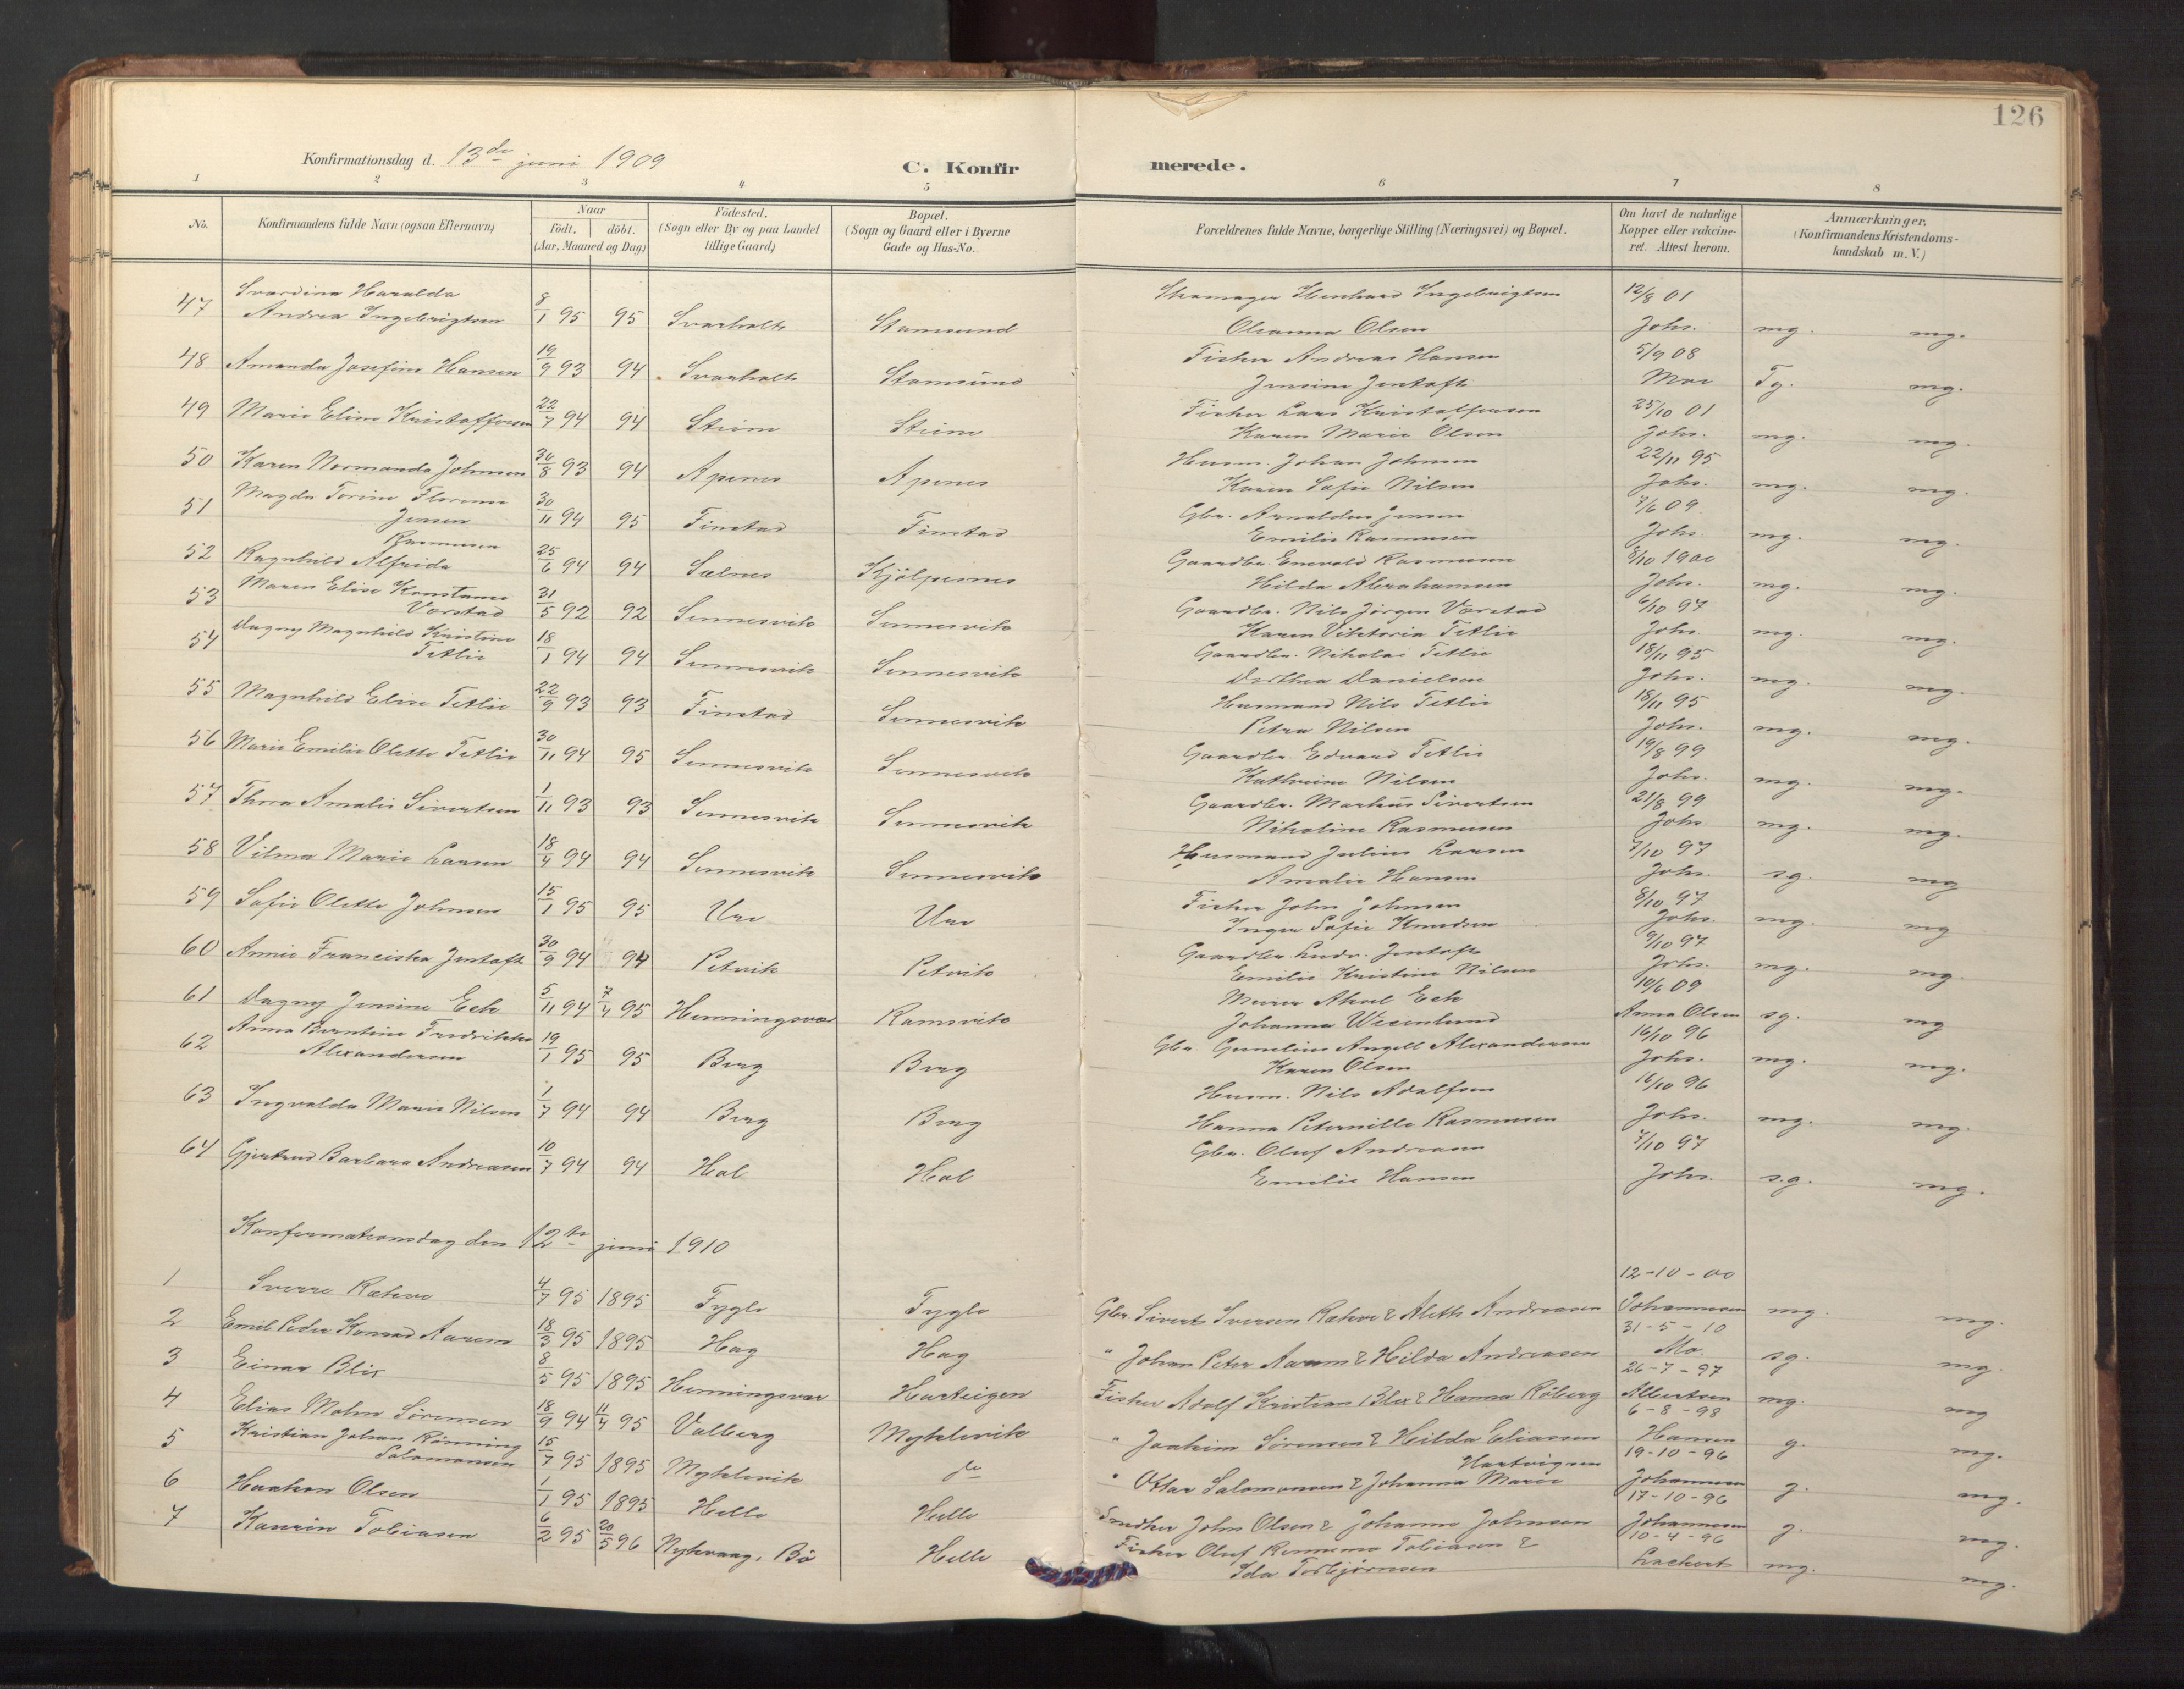 126
Konfirmationsdag d. 13de juni 1909
C. Konfirmerede.
1 2 3 4 5 6 7 8
No.
Konfirmandens fulde Navn (ogsaa Efternavn)
Naar
födt. döbt.
(Aar, Maaned og Dag)
Födested.
(Sogn eller By og paa Landet
tillige Gaard)
Bopæl.
(Sogn og Gaard eller i Byerne
Gade og Hus-No.
Forældrenes fulde Navne, borgerlige Stilling (Næringsvei) og Bopæl.
Om havt de naturlige
Kopper eller vakcine-
ret. Attest herom.
Anmærkninger,
(Konfirmandens Kristendoms-
kundskab m. V.)
47 Haralda Andrea Ingebrigtsen 8/1 95 95 Svarholt Stamsund Skomager Ingebrigtsen 12/8 01
Oleanna Olsen Johs. mg. mg.
48 Amanda Josefine Hansen 19/9 93 94 Svarholt Stamsund Fisker Andreas Hansen 5/9 08
Jensine Jentoft Moe Tg. mg.
49 Marie Eline Kristoffersen 22/7 94 94 Steine Steine Fisker Lars Kristoffersen 25/10 01
Karen Marie Olsen Johs. mg. mg.
50 Karen Normanda Johnsen 30/8 93 94 Apenes Apenes Husm. Johan Johnsen 22/11 95
Karen Sofie Nilsen Johs. mg. mg.
51 Magda Torine Florense Jensen 30/11 94 95 Finstad Finstad Gbr. Arnoldus Jensen 7/6 09
Emilie Rasmussen Johs. mg. mg.
52 Ragnhild Alfrida Rasmussen 25/6 94 94 Sælnes Kjölpesnes Gaardbr. Enevold Rasmussen 8/10 1900
Hilda Abrahamsen Johs. mg. mg.
53 Maren Elise KonstanseVærstad 31/5 92 92 Sennesvik Sennesvik Gaardbr. Nils Jörgen Værstad 6/10 97
Karen Viktoria Tetlie Johs. mg. mg.
54 Dagny Magnhild Kristine Tetlie 18/1 94 94 Sennesvik Sennesvik Gaardbr. Nikolai Tetlie 18/11 95
Dorthea Danielsen Johs. mg. mg.
55 Magnhild Elise Tetlie 22/9 93 93 Finstad Sennesvik Husmand Nils Tetlie 18/11 95
Petra Nilsen Johs. mg. mg.
56 Marie Emilie Olette Tetlie 30/11 94 95 Sennesvik Sennesvik Gaardbr. Edvard Tetlie 19/8 99
Kathrine Nilsen Johs. mg. mg.
57 Thora Amalie Sivertsen 1/11 93 93 Sennesvik Sennesvik Gaardbr. Markus Sivertsen 21/8 99
Nikoline Rasmussen Johs. mg. mg.
58 Vilma Marie Larsen 18/4 94 94 Sennesvik Sennesvik Husmand Julius Larsen 7/10 97
Amalie Hansen Johs. sg. mg
59 Sofie Olette Johnsen 15/1 95 95 Ure Ure Fisker John Johnsen 8/10 97
Inger Sofie Knudsen Johs. mg. mg
60 Annie Franciska Jentoft 30/9 94 94 Petvik Petvik Gaardbr. Ludv. Jentoft 9/10 97
Emilie Kristine Nilsen Johs. mg. mg.
61 Dagny Jensine Eek 5/11 94 7/4 95 Henningsvær Ramsvik Murer Aksel Eek 10/6 09
Johanna Wesenlund Anna Olsen sg. mg
62 Anna Berntine Fredrikke Alexandersen 19/1 95 95 Berg Berg Gbr. Cornelius Angell Alexandersen 16/10 96
Karen Olsen Johs. mg. mg.
63 Ingvalda Marie Nilsen 1/7 94 94 Berg Berg Husm. Nils Adolfsen 16/10 96
Hanna Peternille Rasmussen Johs. mg. mg.
64 Gjertrud Barbara Andreasen 10/7 94 94 Hol Hol Gbr. Oluf Andreasen 7/10 97
Emilie Hansen Johs. s.g. mg.
Konfirmationsdag den 12te juni 1910
12-10-00
1 Sverre Rækve 4/7 95 1895 Fygle Fygle Gbr. Sivert Iversen Rækve & Aleth Andreasen Johannesen mg. mg.
31-5-10
2 Emil Peder Konrad Aarem 18/3 95 1895 Hag Hag " Johan Peter Aarem & Hilda Andreasen Mo. sg. mg.
26-7-97
3 Einar Blix 8/5 95 1895 Henningsvær Harteigen Fisker Adolf Kristian Blix & Hanna Röberg Albertsen mg. mg
6-8-98
4 Elias Mohn Sörensen 18/9 94 11/4 95 Valberg Myklevik " Joakim Sörensen & Hilda Eliassen Hansen g. mg.
19-10-96
5 Kristian Johan Rönning Salomonsen 15/7 95 1895 Myklevik do " Ottar Salomonsen & Johanna Marie Hartvigsen Johannesen g. mg.
17-10-96
6 Haakon Olsen 1/1 95 1895 Helle Helle Snedker John Olsen & Johanne Johnsen Johannesen g. mg.
10-4-96
7 Kaurin Tobiasen 6/2 95 20/5 96 Nykvaag, Bö Helle Fisker Oluf Tobiasen &
Ida Torbjörnsen Lockert mg. mg.